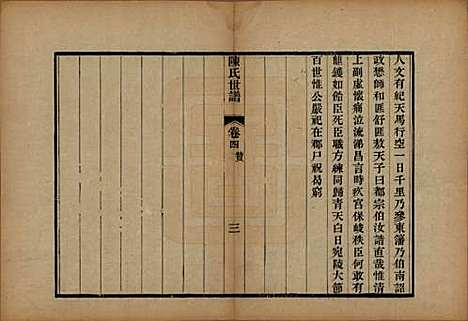 人文有紀天馬行空一日千里乃參東藩乃伯南詔
政恭師和匪舒匪敖天子曰都宗伯汝諧直哉惟清
上副虛懷痛泣流涕昌言時疾宮保峻秩臣何敢有
鼎鑊如飴臣死臣職方練同歸青天白日宛陵大節
百世惟公嚴祀在郡尸祝曷窮
陳氏世譜
卷四
贊
三